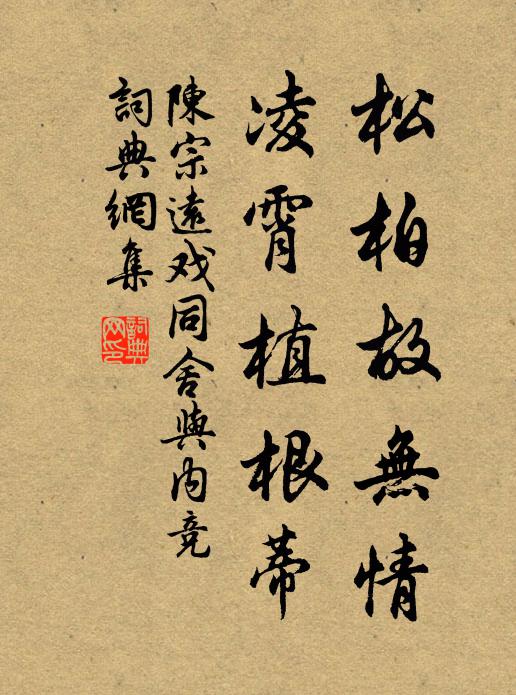 松柏故無情
凌霄植根蒂
陳宗遠戏同舍與内竞
詞典網集
詞典
网印